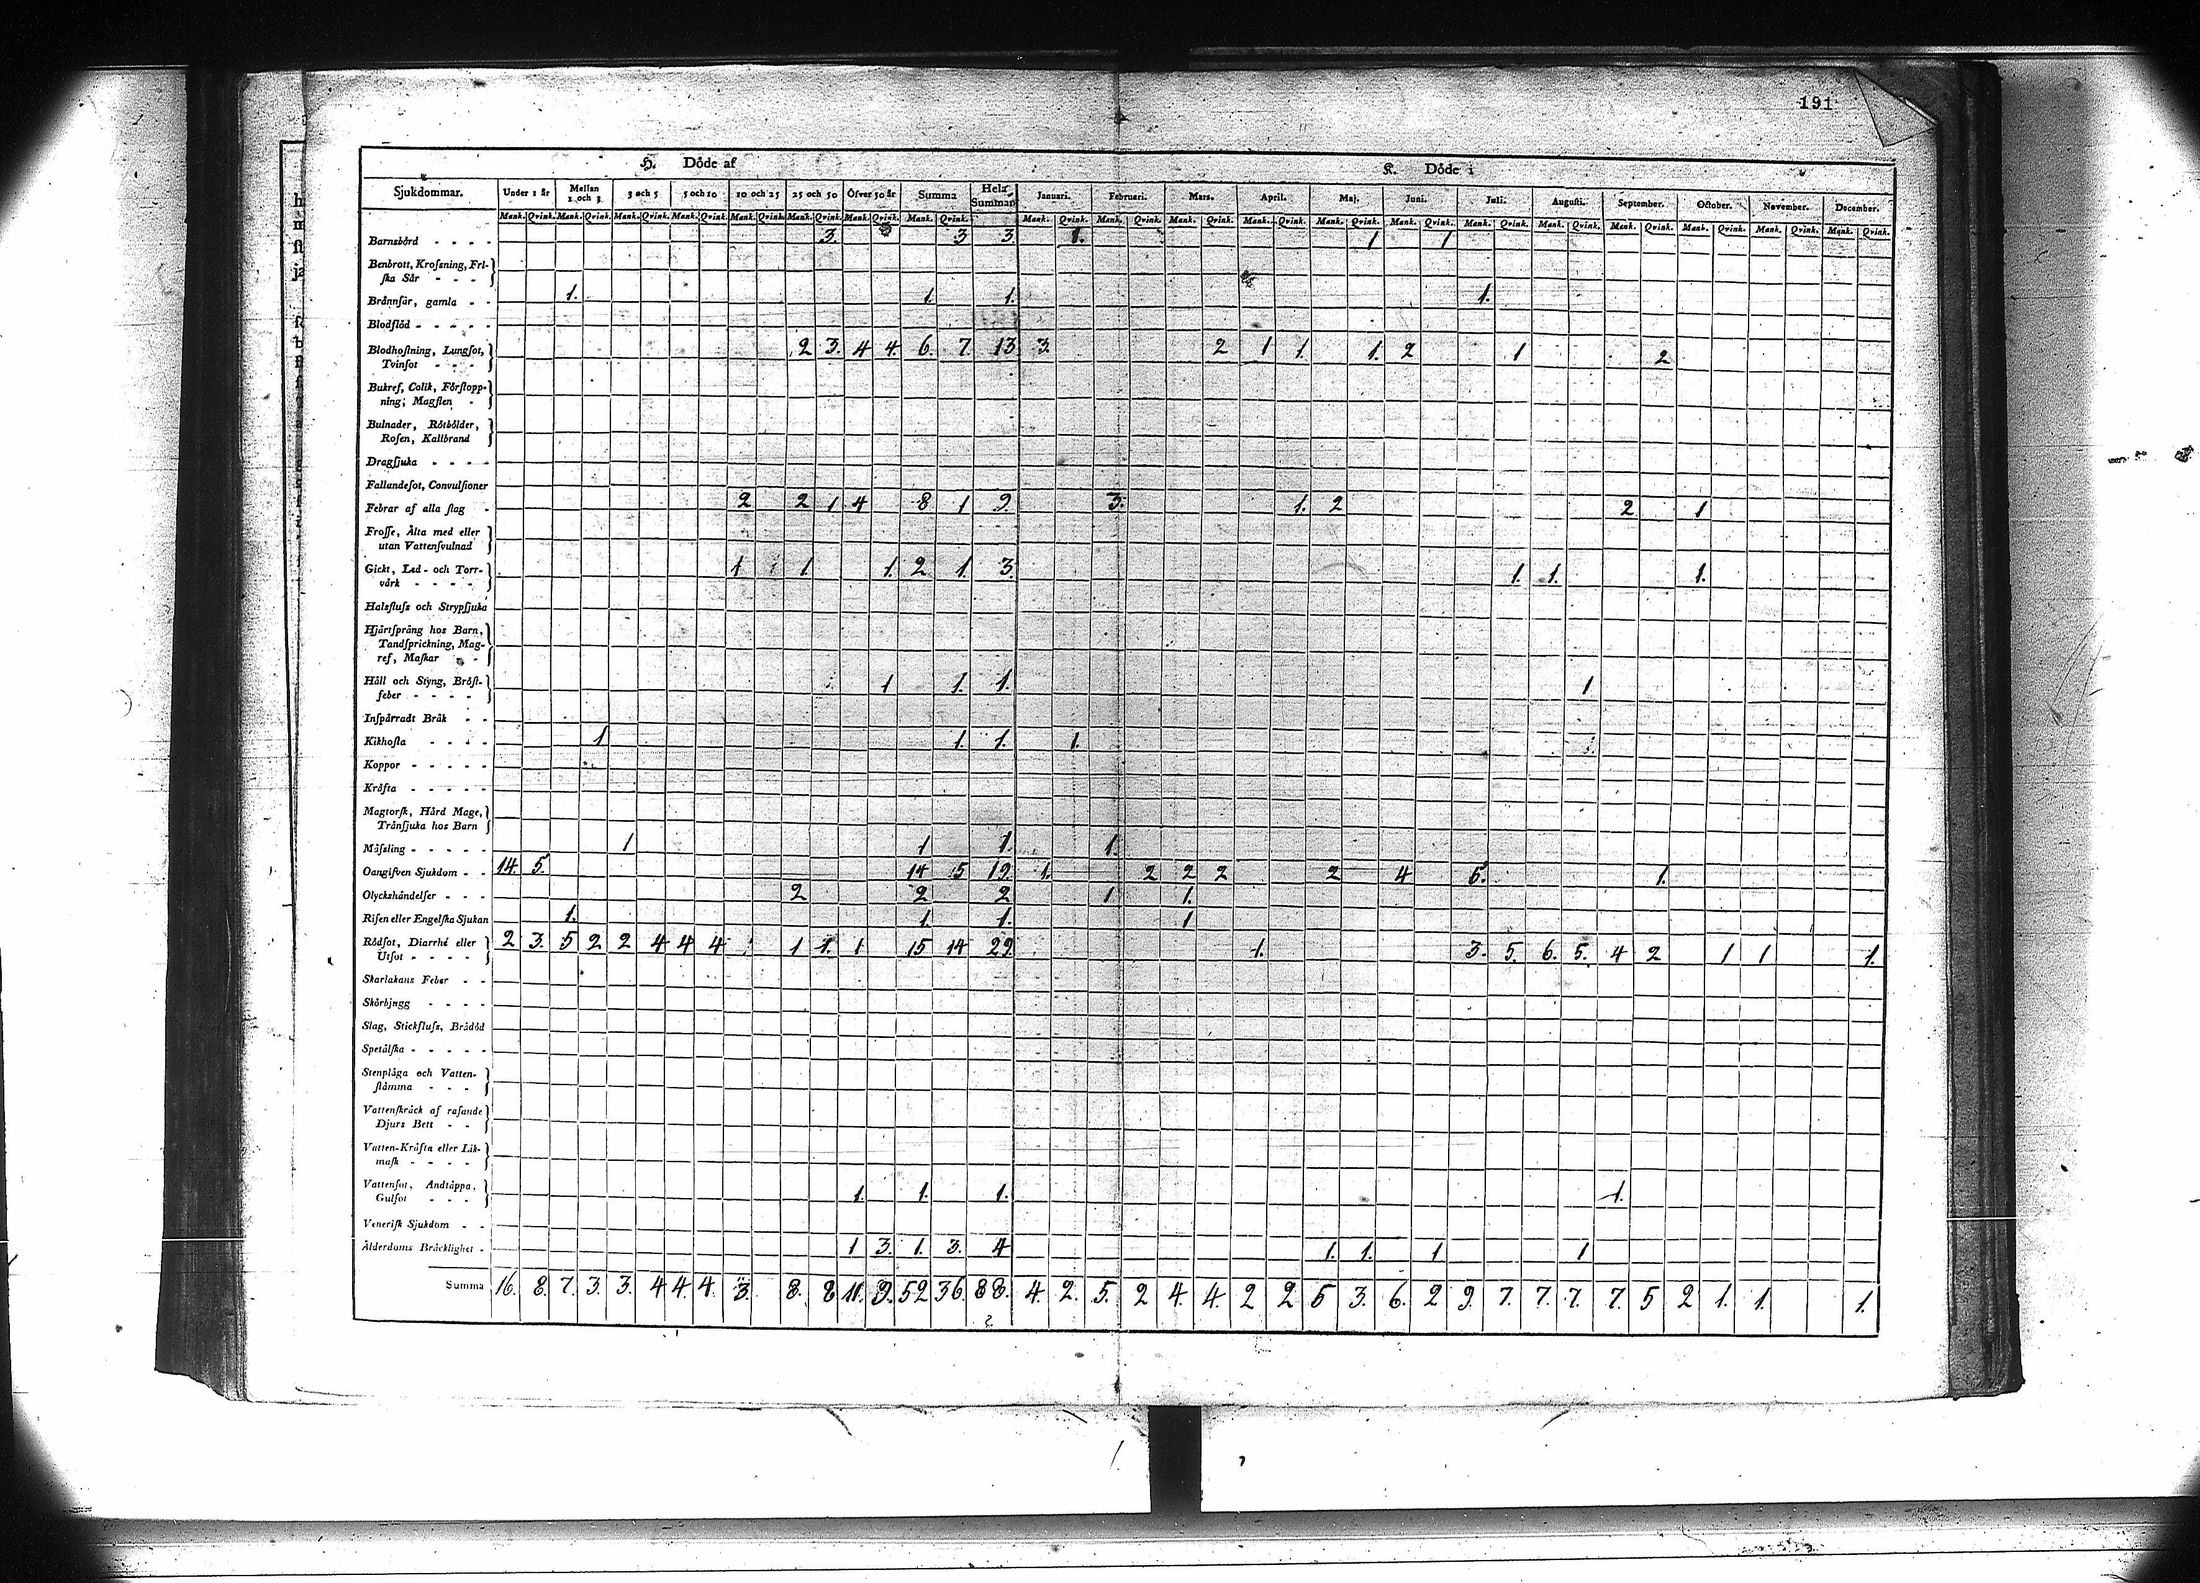 191
H. Döde af K. Döde i
Sjukdommar. Under 1 år Mellan 1 och 3 3 och 5 5 och 10 10 och 25 25 och 50 Öfver 50 år Summa Hela Summan Januari. Februari. Mars. April. Maj. Juni. Juli. Augusti. September. October. November. December.
Mank. Qvink. Mank. Qvink. Mank. Qvink. Mank. Qvink. Mank. Qvink. Mank. Qvink. Mank. Qvink. Mank. Qvink. Mank. Qvink. Mank. Qvink. Mank. Qvink. Mank. Qvink. Mank. Qvink. Mank. Qvink. Mank. Qvink. Mank. Qvink. Mank. Qvink. Mank. Qvink. Mank. Qvink. Mank. Qvink.
Barnsbörd - - - - 3. 3 3. 1. 1 1
Benbrott, Kroſsning, Fri-
ſka Sår - - -
Brännſår, gamla - - 1. 1. 1. 1.
Blodflöd - - - - -
Blodhoſtning, Lungſot, 2 3. 4 4. 6. 7. 13 3. 2 1 1. 1. 2 1 2
Tvinſot - - -
Bukref, Colik, Förſtopp-
ning, Magſten -
Bulnader, Rötbölder,
Roſen, Kallbrand
Dragſjuka - - - -
Fallandeſot, Convulſioner
Febrar af alla ſlag - 2 2 1 4 8 1 9. 3. 1. 2 2 1
Froſſe, Älta med eller
utan Vattenſvulnad
Gickt, Led- och Torr- 1 1. 1. 2 1. 3. 1. 1. 1.
värk - - - -
Halsfluſs och Strypſjuka
Hjärtſpräng hos Barn,
Tandſprickning, Mag-
ref, Maſkar - -
Håll och Styng, Bröſt- 1 1. 1. 1
feber - - - -
Inſpärradt Bråk - -
Kikhoſta - - - - 1 1. 1. 1.
Koppor - - - - -
Kräfta - - - - -
Magtorſk, Hård Mage,
Tränſjuka hos Barn
Mäſsling - - - - - 1 1 1. 1.
Oangifven Sjukdom - - 14. 5. 14 5 19. 1. 2 2 2 2 4 5. 1.
Olyckshändelſer - - - 2 2 2 1 1.
Riſen eller Engelſka Sjukan 1. 1. 1. 1
Rödſot, Diarrhé eller 2 3. 5 2 2 4 4 4 1 1. 1 15 14 29. 1. 3. 5. 6. 5. 4 2 1 1 1.
Utſot - - - -
Skarlakans Feber - -
Skörbjugg - - - -
Slag, Stickfluſs, Brådöd
Spetälſka - - - - -
Stenplåga och Vatten-
ſtämma - - -
Vattenſkräck af raſande
Djurs Bett - -
Vatten-Kräfta eller Lik-
maſk - - - -
Vattenſot, Andtäppa, 1. 1. 1. 1.
Gulſot - - -
Veneriſk Sjukdom - -
Ålderdoms Bräcklighet - 1 3. 1. 3. 4 1. 1. 1 1
Summa 16. 8. 7. 3. 3. 4 4. 4. 3. 8. 8 11. 9. 52 36. 88. 4. 2. 5. 2 4. 4. 2 2 5 3. 6. 2 9. 7. 7. 7. 7. 5 2 1. 1. 1.